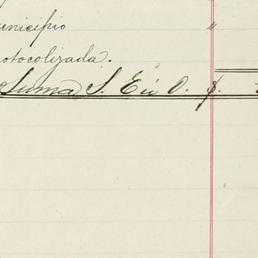 unicipio "
otocolizada.
Suma S. E ú O. $